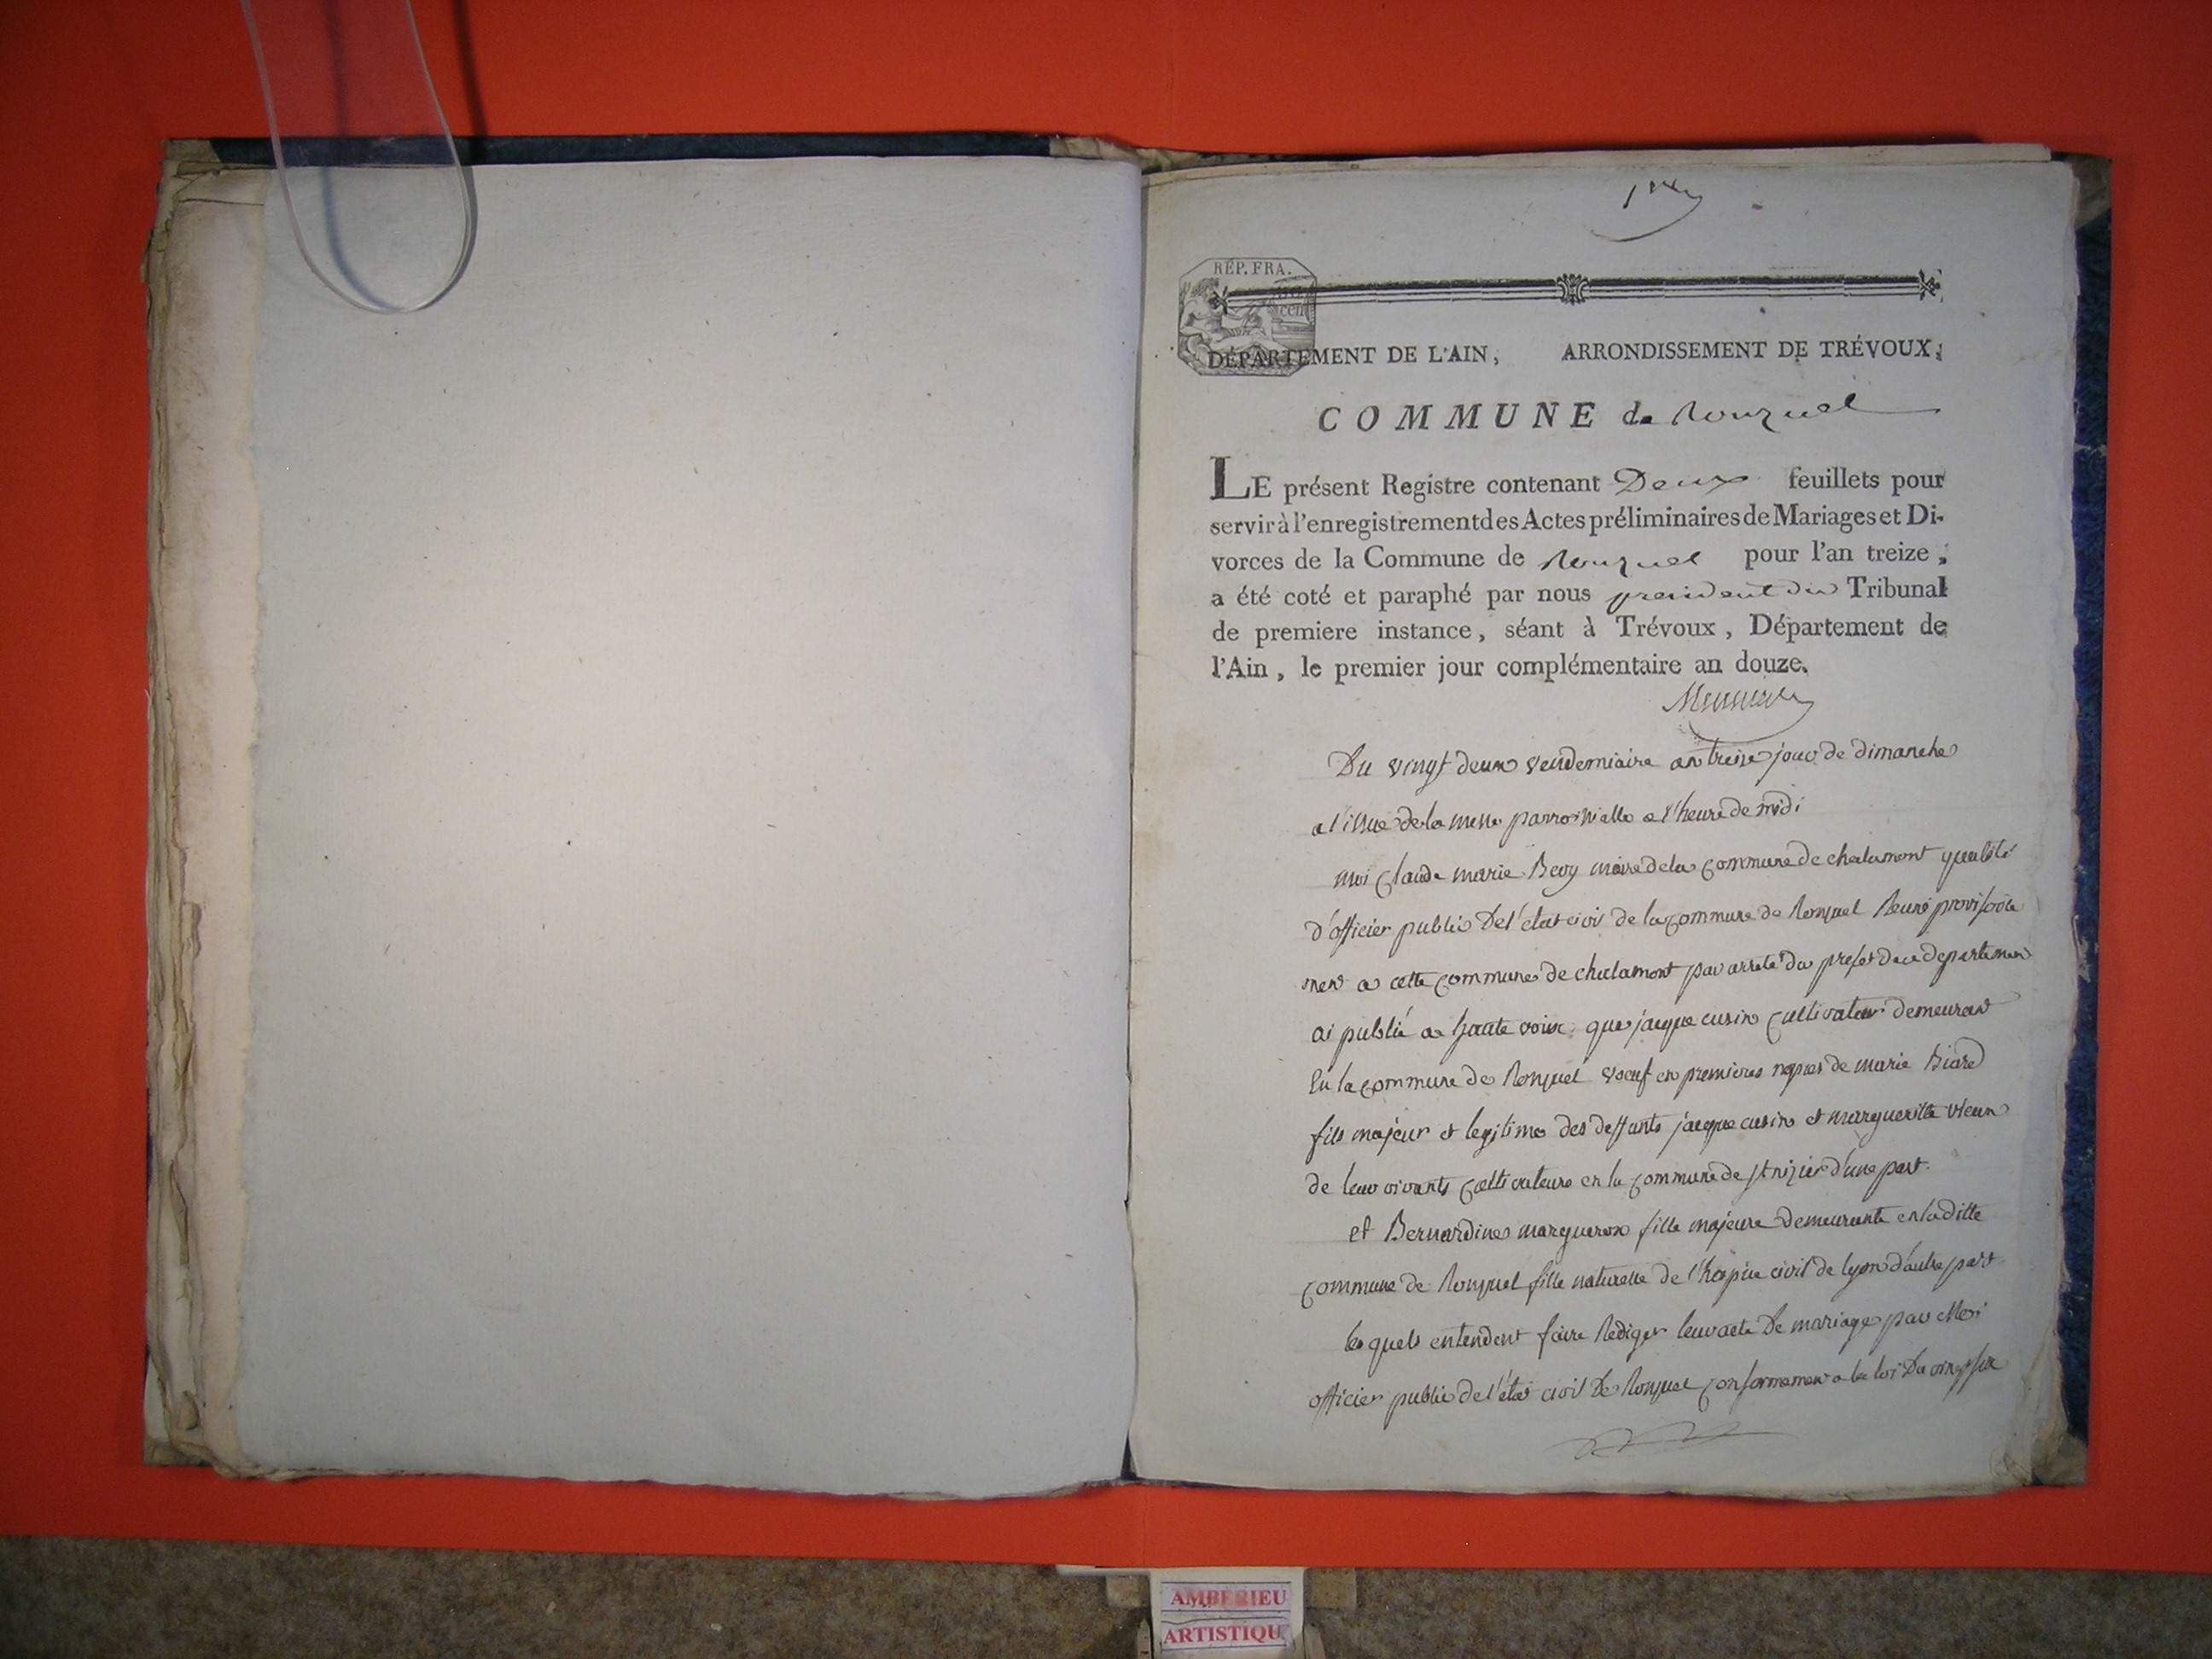 1re
RÉP. FRA.
DÉPARTEMENT DE L'AIN, ARRONDISSEMENT DE TRÉVOUX,
COMMUNE de Ronzuel
LE présent Registre contenant Deux feuillets pour
servir à l'enregistrement des Actes préliminaires de Mariages et Di-
vorces de la Commune de Ronzuel pour l'an treize,
a été coté et paraphé par nous president du Tribunal
de premiere instance, séant à Trévoux, Département de
l'Ain, le premier jour complémentaire an douze.
Du vingt deux vendemiaire an treize jour de dimanche
a l'issue de la messe parroissielle a l'heure de midi
moi Claude marie maire de la commune de chalamont
d'officier public de l'état civil de la commune de Ronzuel Reuni provisoire
ment a cette commune de chalamont par arreté du prefet de ce departement
ai publié a haute voix que jacque cusin cultivateur demeurant
En la commune de Ronzuel veuf en premieres nopces de marie
fils majeur et legitime des deffunts jacque cusin et margueritte
de leur vivants cultivateurs en la commune de st nizier d'une part.
et Bernardine margueron fille majeure demeurante en la ditte
commune de Ronzuel fille naturelle de l'hospice civil de lyon d'autre part
les quels entendent faire Rediger leur acte de mariage par Moi
officier public de l'état civil de Ronzuel conformement a la loi du vingt six
AMBERIEU
ARTISTIQU